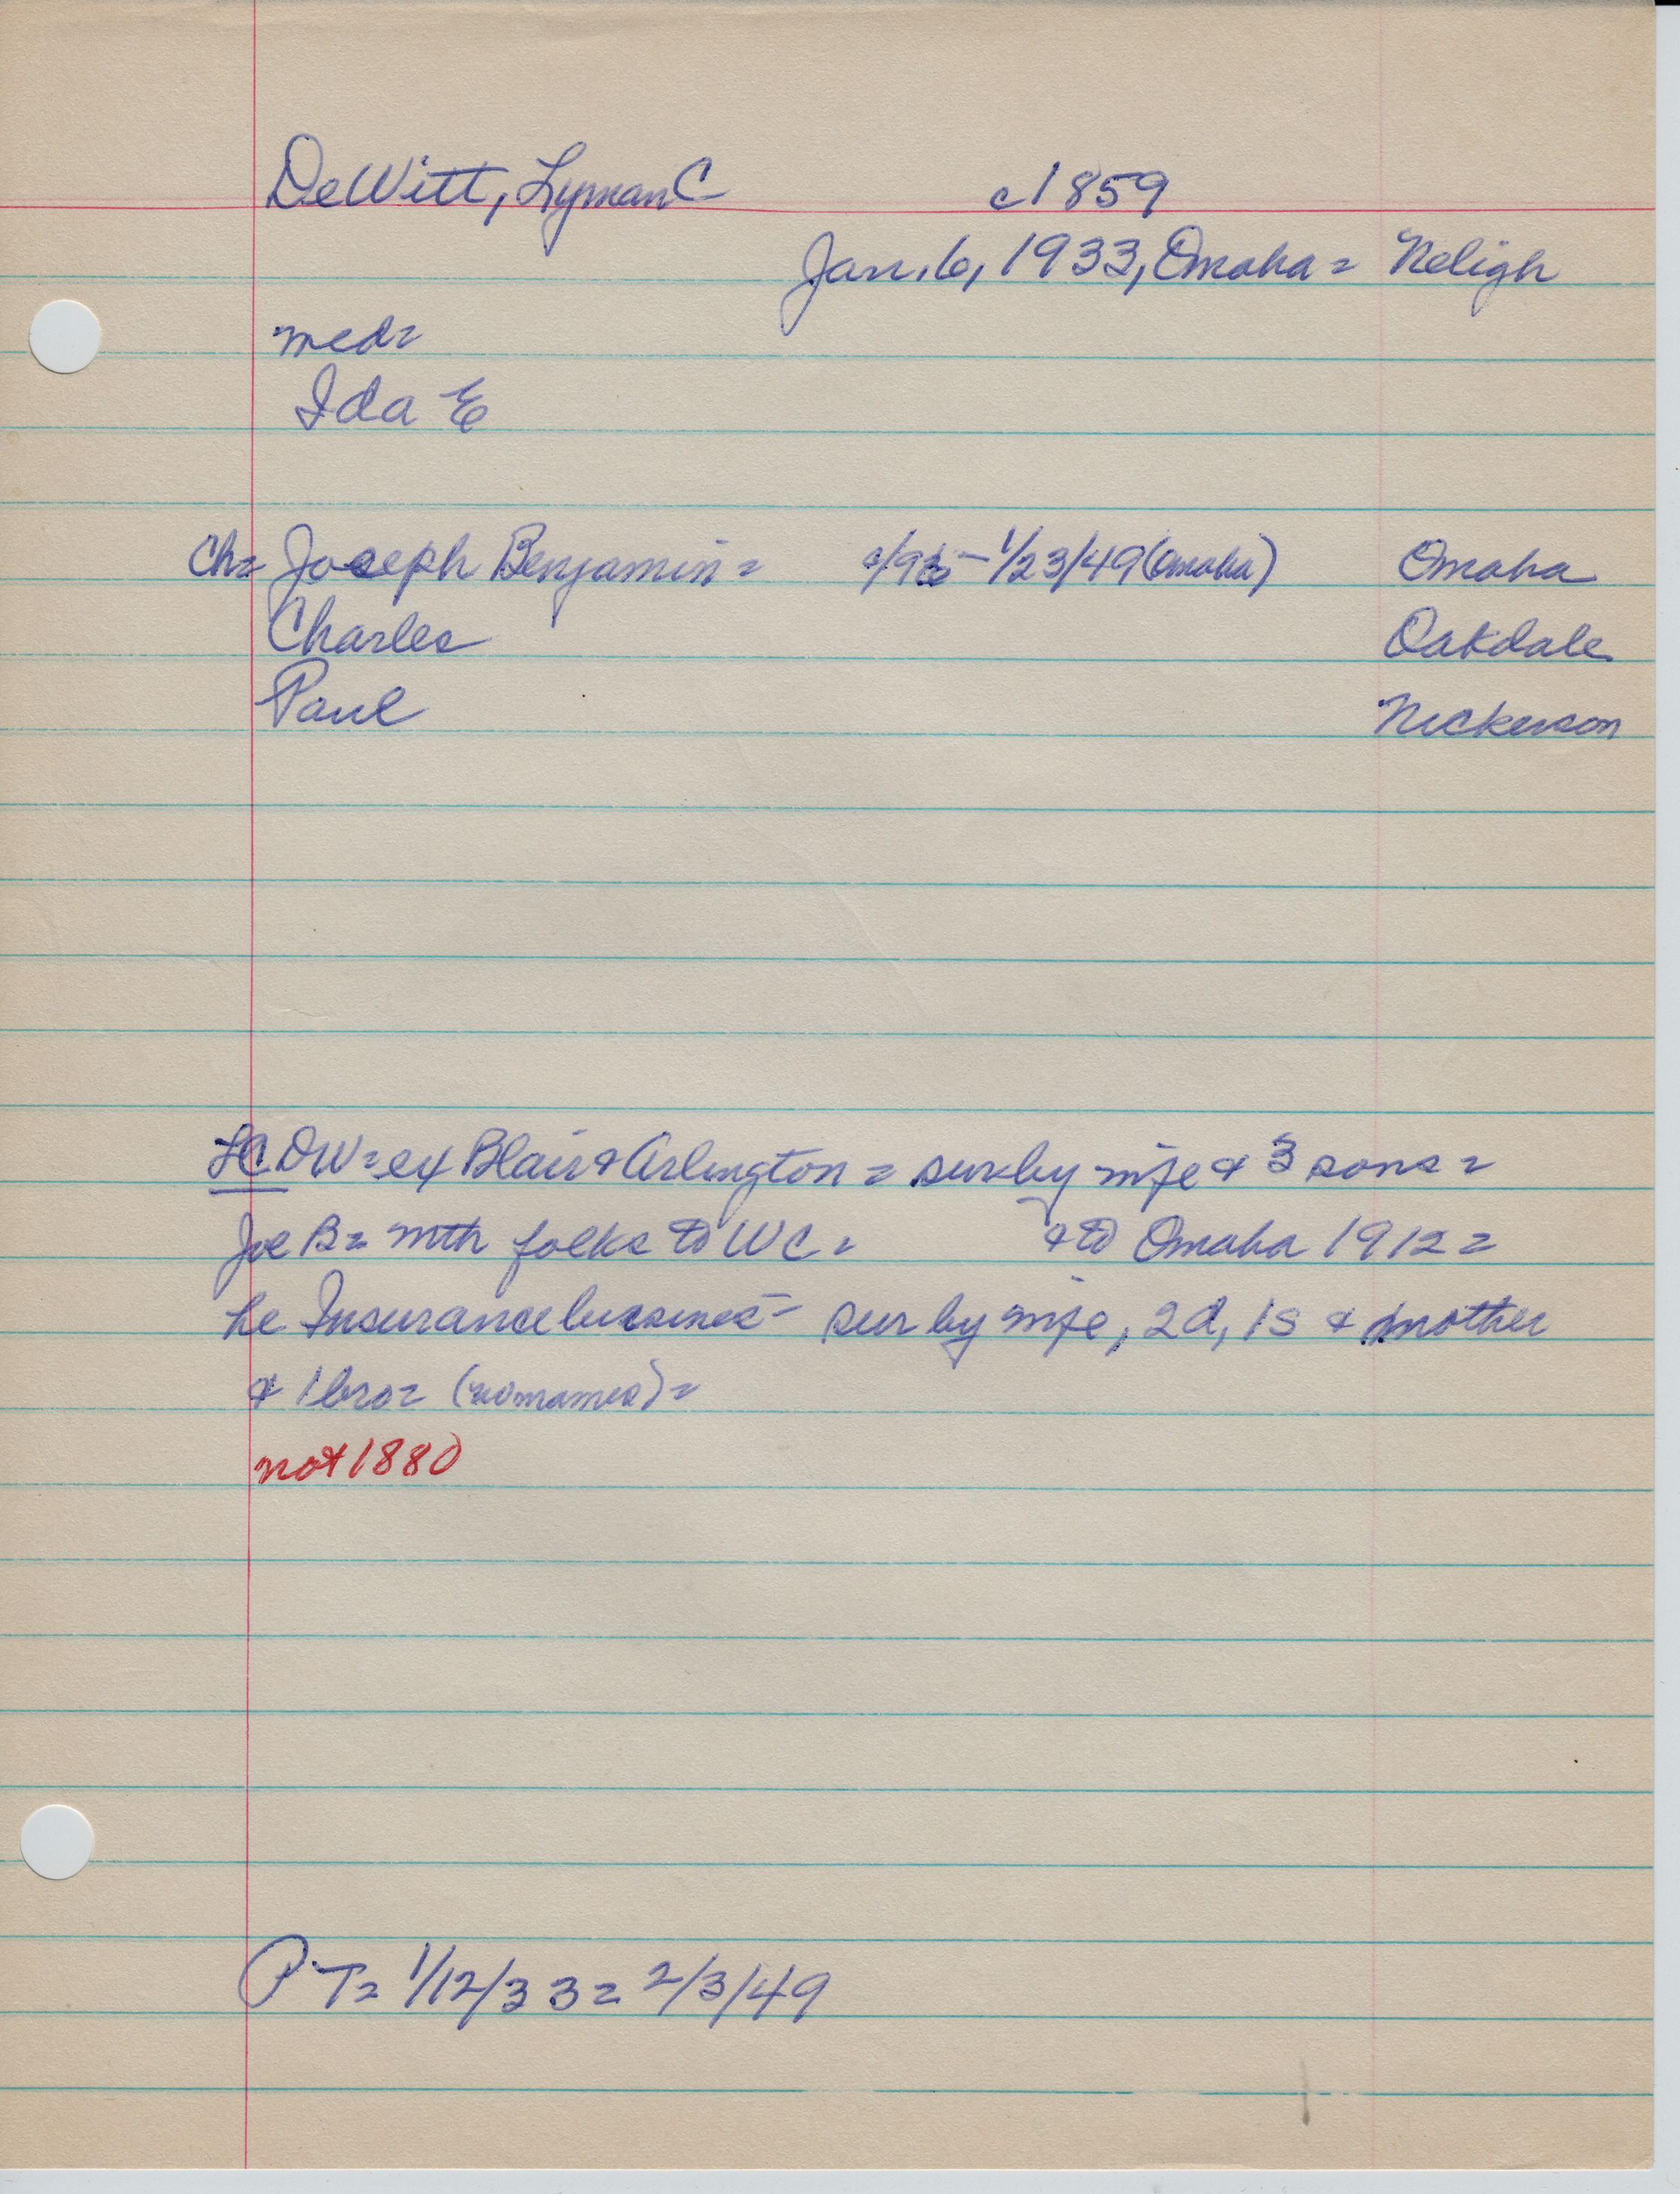 DeWitt, Lyman C c1859
Jan. 6, 1933, Omaha = Neligh
med=
Ida E
Ch= Joseph Benjamin = - 1/23/49 (Omaha) Omaha
Charles Oakdale
Paul Nickerson
LC DW = ex Blair & Arlington = sur by wife & 3 sons =
Joe B = wth folks to WC = & to Omaha 1912 =
he Insurance business - sur by wife, 2d, 1s & mother
& 1 bro = (no names) =
not 1880
PT = 1/12/33 = 2/3/49